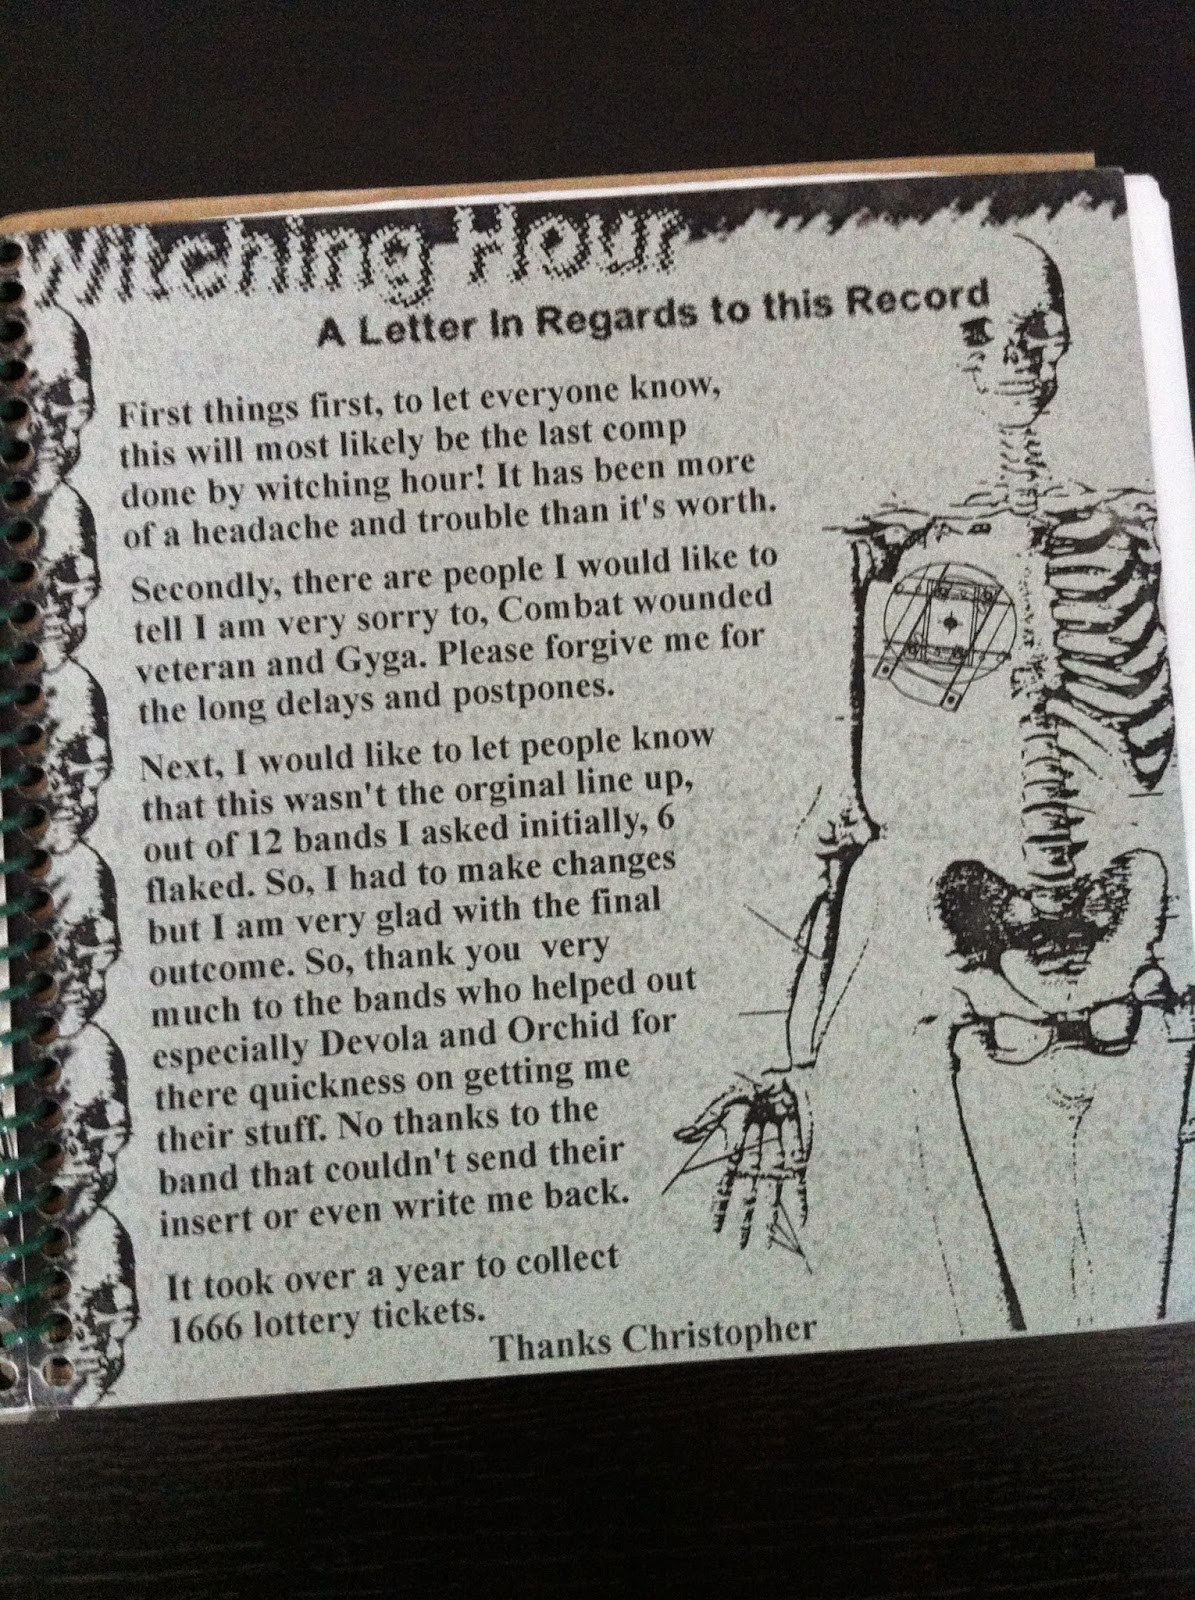 Witching Hour
A Letter In Regards to this Record
First things first, to let everyone know,
this will most likely be the last comp
done by witching hour! It has been more
of a headache and trouble than it's worth.
Secondly, there are people I would like to
tell I am very sorry to, Combat wounded
veteran and Gyga. Please forgive me for
the long delays and postpones.
Next, I would like to let people know
that this wasn't the orginal line up,
out of 12 bands I asked initially, 6
flaked. So, I had to make changes
but I am very glad with the final
outcome. So, thank you very
much to the bands who helped out
especially Devola and Orchid for
there quickness on getting me
their stuff. No thanks to the
band that couldn't send their
insert or even write me back.
It took over a year to collect
1666 lottery tickets.
Thanks Christopher